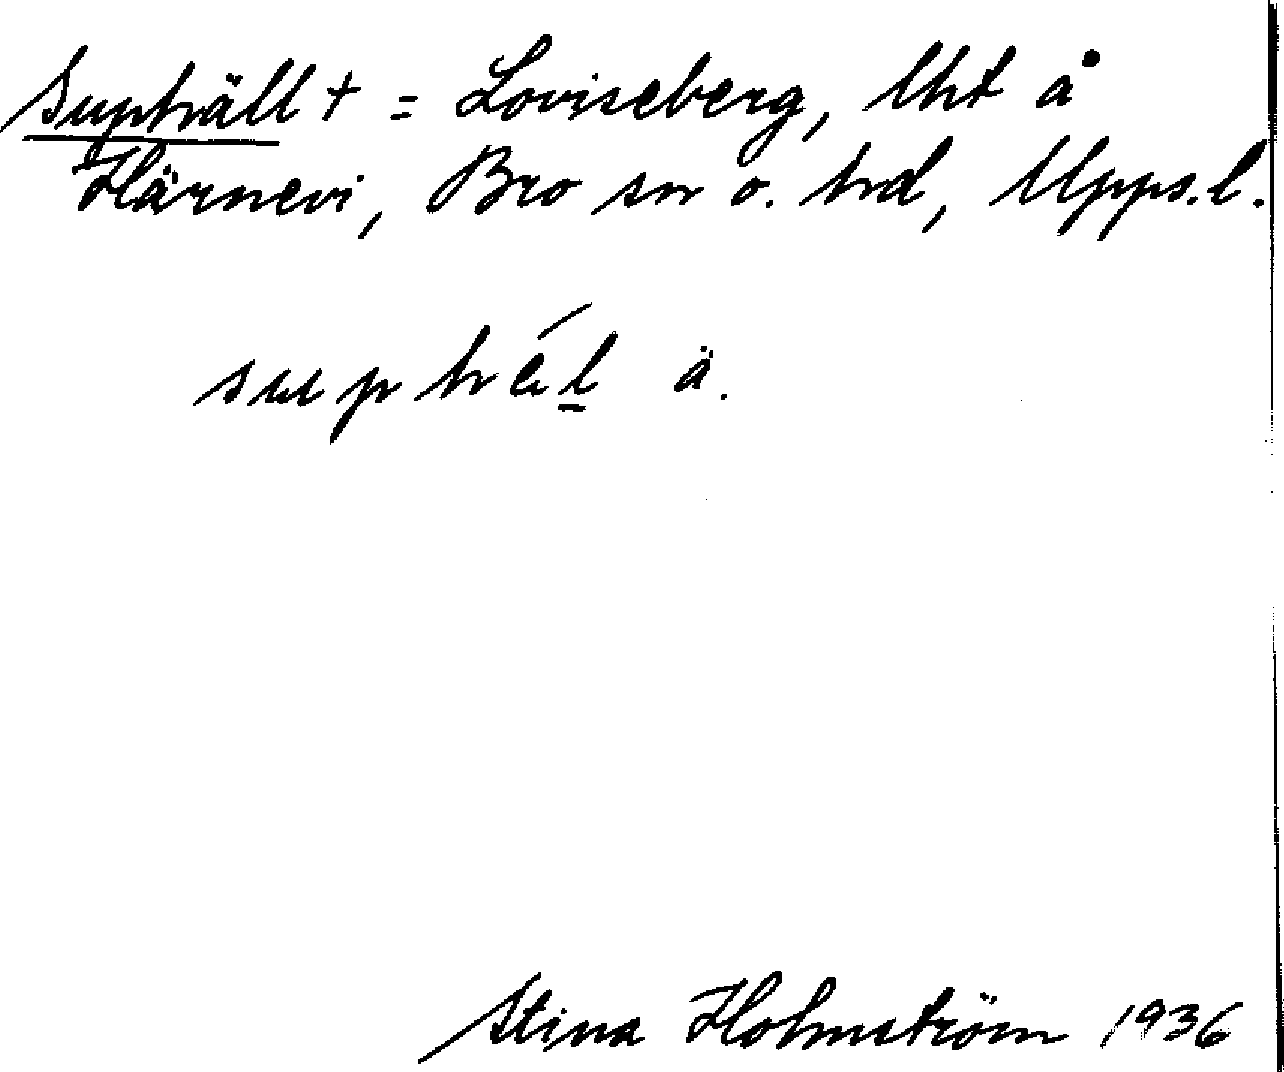 Suphäll † = Loviseberg, lht å
Härnevi, Bro sn o. hd, Upps.l.
suphél ä.
Stina Holmström 1936